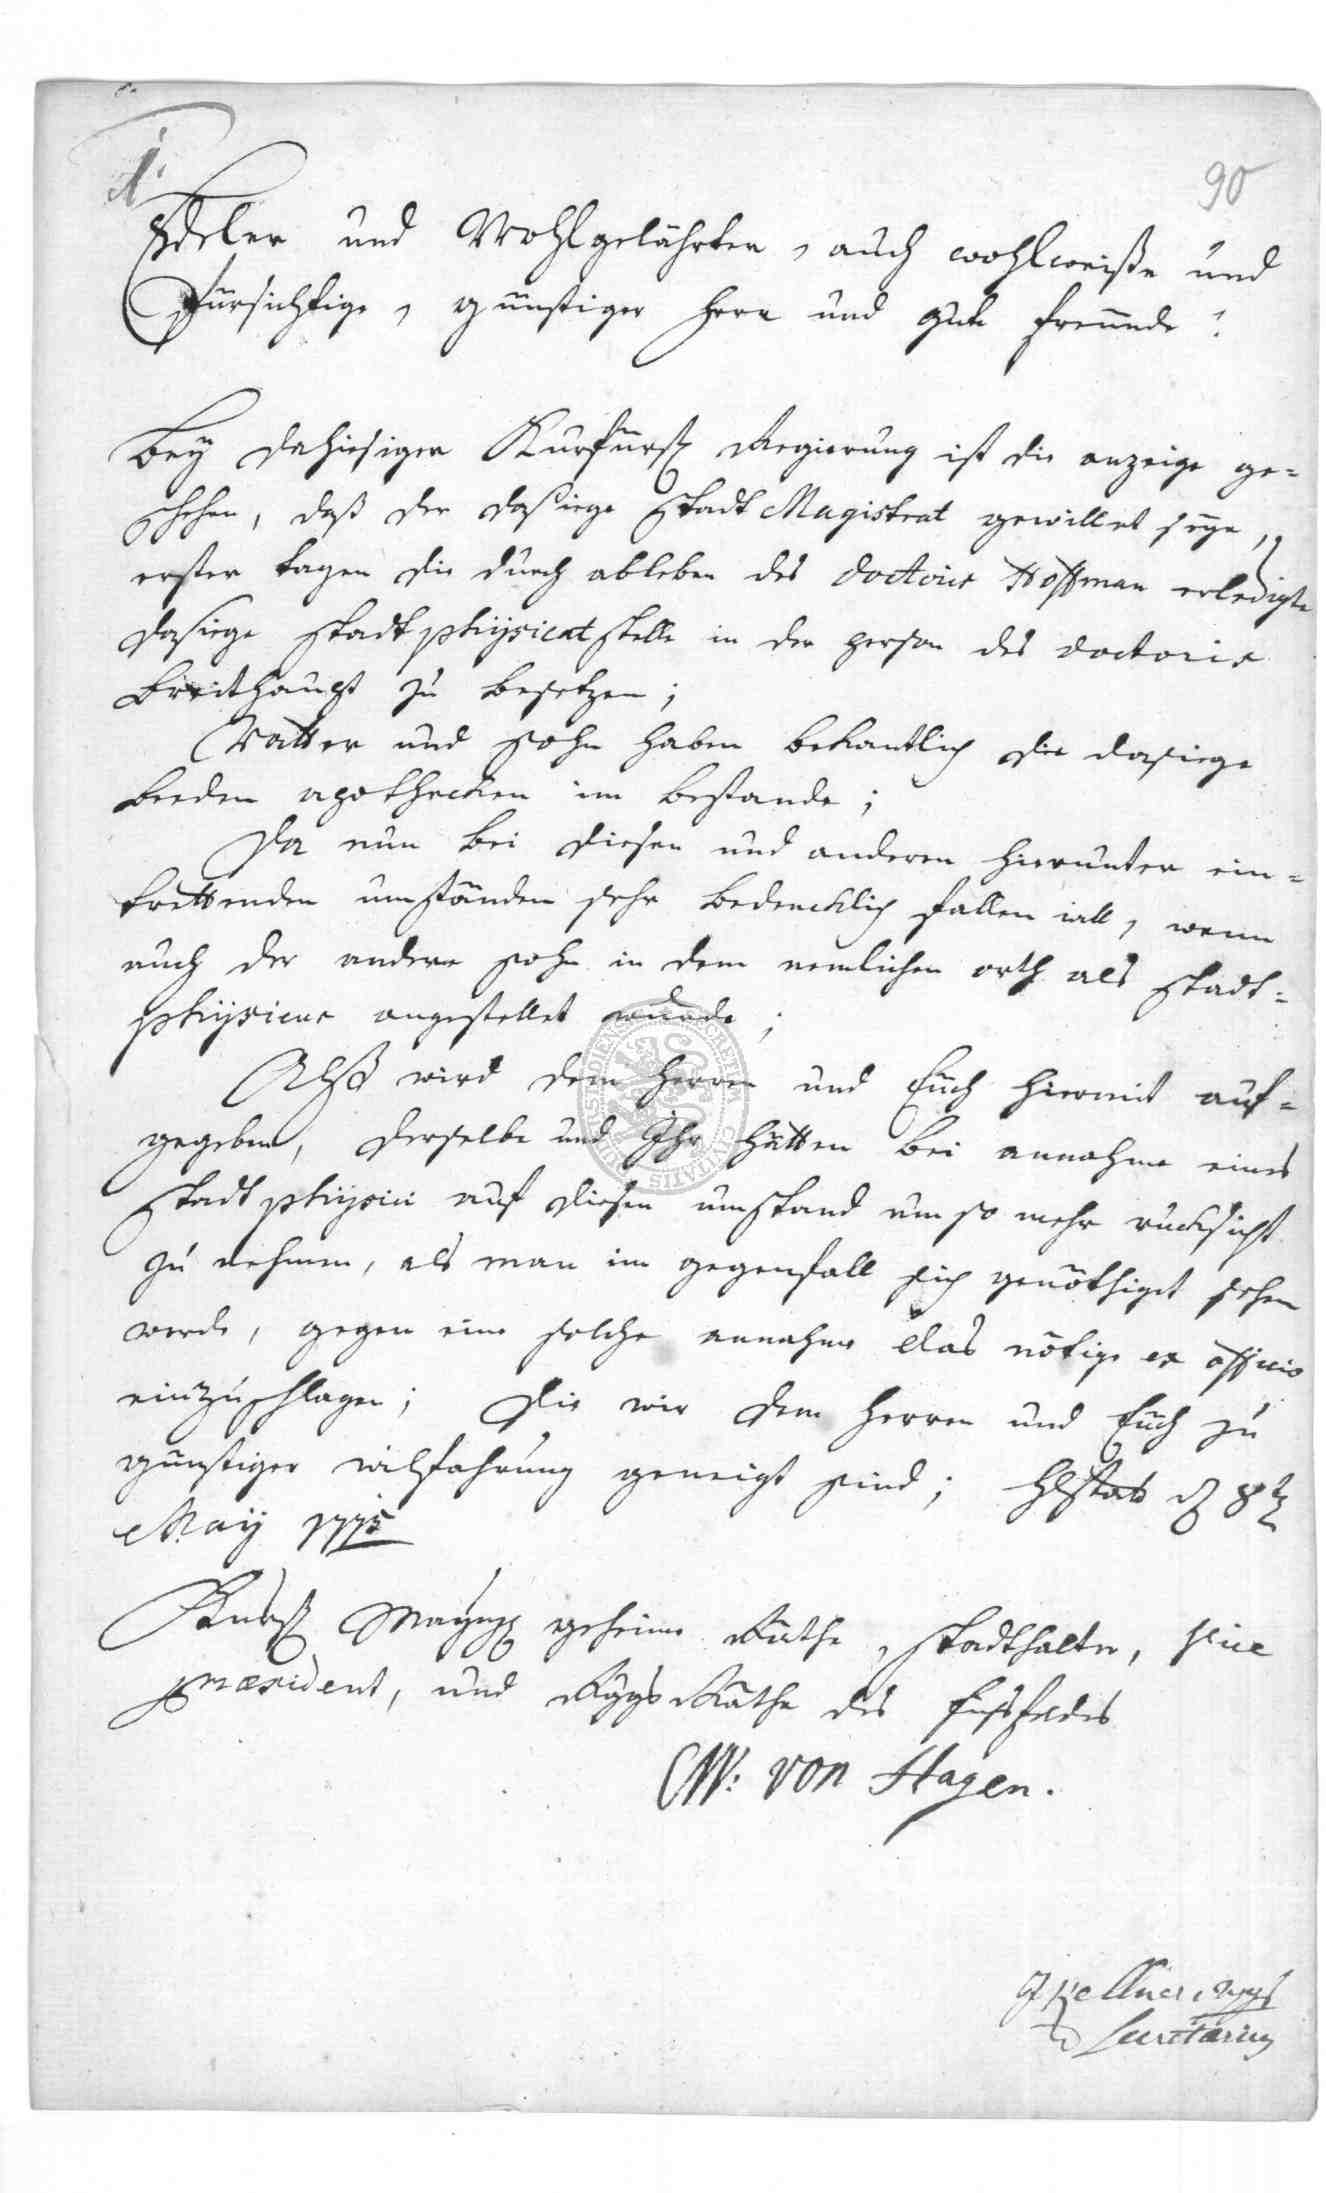 1.
90
Edeler und Wohlgelährter, auch wohlweiße und
fürsichtige, günstiger Herr und gute freunde!
Bey dahiesiger Kurfürstl Regierung ist die anzeige ge=
schehen, daß der dasiege Stadt Magistrat gewillet seye,
erster tagen die durch ableben des doctoris Hoffman erledigte
dasiege Stadt physicat stelle in der person des doctoris
Breithaupt zu besetzen;
Vatter und sohn haben bekantlich die dasiege
beeden apothecken im bestande;
Da nun bei diesen und anderen hierunter ein=
trettenden umständen sehr bedencklich fallen will, wenn
auch der andere sohn in dem nemlichen orth als Stadt=
physicus angestellet würde;
Alß wird dem Herren und Euch hiermit auf=
gegeben, derselbe und Ihr hätten bei annahme eines
Stadt physici auf diesen umstand um so mehr rücksicht
zu nehmen, als man im gegenfall sich genöthiget sehen
werde, gegen eine solche annahme das nötige ex officio
einzuschlagen; Die wir dem Herren und Euch zu
günstiger wilfahrung geneigt sind; Hlstatt d 8t
May 1775
Kurfl Mayntzl geheime Räthe, Stadthalter, Vice
præsident, und Rggs Räthe des Eichsfeldes
CW: von Hagen.
Kellner, Rggs
Secretarius
SIGILLUM CIVITATIS